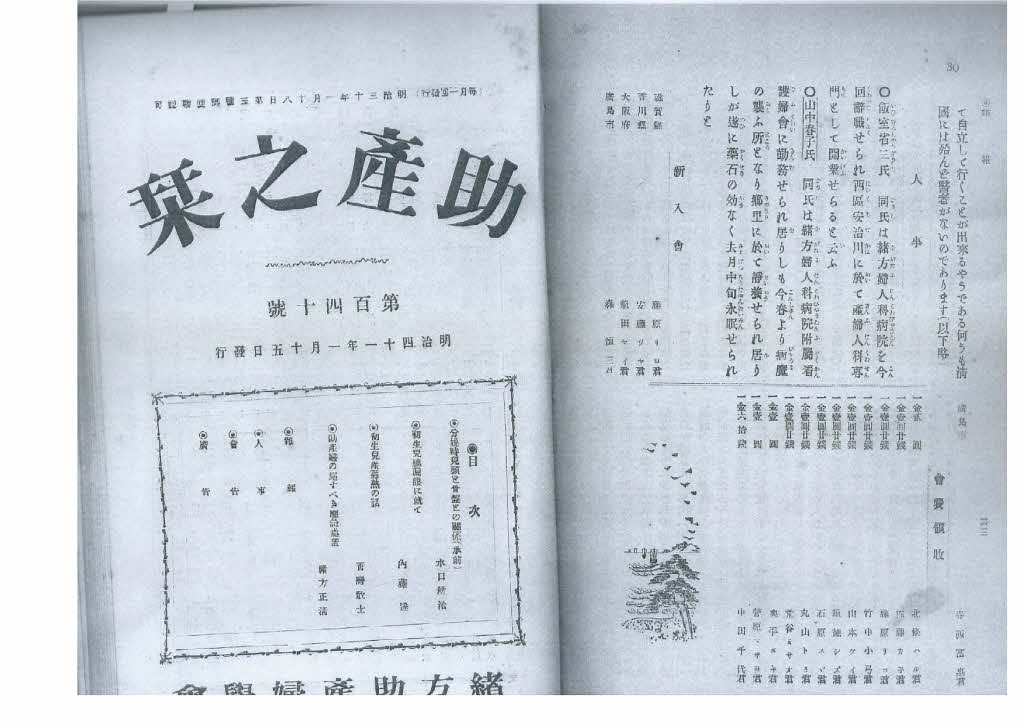 30
て自立して行くことが出來るやうである何うも清
國には殆んど醫者がないのであります(以下略)
人事
〇飯室省三氏 同氏は緒方婦人科病院を今
回辭職せられ西區安治川に於て産婦人科專
門として開業せらると云ふ
〇山中春子氏 同氏は緒方婦人科病院附屬看
護婦會に勤務せられ居りしも今春より病魔
の襲ふ所となり鄕里に於て靜養せられ居り
しが遂に藥石の効なく去月中旬永眠せられ
たりと
新入會
滋賀縣 藤原リヨ君
香川縣 安藤リヤ君
大阪府
廣島市
會費領收
一金貳圓
一金壹圓廿錢
一金壹圓廿錢 藤原リヨ君
一金壹圓廿錢 竹中小弓君
一金壹圓廿錢 山本クイ君
一金壹圓廿錢
一金壹圓廿錢
一金壹圓廿錢 丸山トミ君
一金壹圓廿錢
一金壹圓
一金壹圓
一金六拾錢 中田千代君
(每月一回發行)明治三十年一月十八日第三種郵便物認可
助產之栞
第百四十號
明治四十一年一月十五日發行
◉目次
◉分娩時兒頭と骨盤との關係(承前) 水口耕治
◉初生兒膿漏眼に就て 內藤達
◉初生兒產褥熱の話
◉助產婦の爲すべき應急處置 緒方正清
◉雜報
◉人事
◉會告
◉廣告
緒方助產婦學會